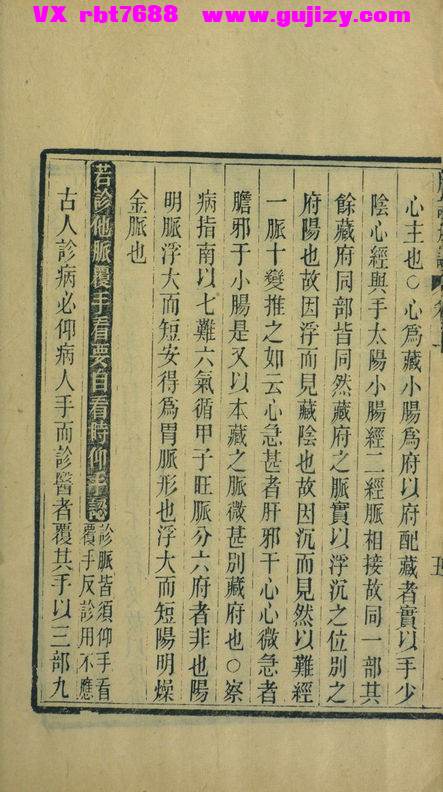 VX rbt7688 www.gujizy.com
心主也○心爲藏小腸爲府以府配藏者實以手少
陰心經與手太陽小腸經二經脈相接故同一部其
餘藏府同部皆同然藏府之脈實以浮沉之位別之
府陽也故因浮而見藏陰也故因沉而見然以難經
一脈十變推之如云心急甚者肝邪干心心微急者
膽邪于小腸是又以本藏之脈微甚別藏府也○察
病指南以七難六氣循甲子旺脈分六府者非也陽
明脈浮大而短安得爲胃脈形也浮大而短陽明燥
金脈也
若診他脈覆手看要自看時仰手認
診脈皆須仰手看
覆手反診用不應
古人診病必仰病人手而診醫者覆其手以三部九